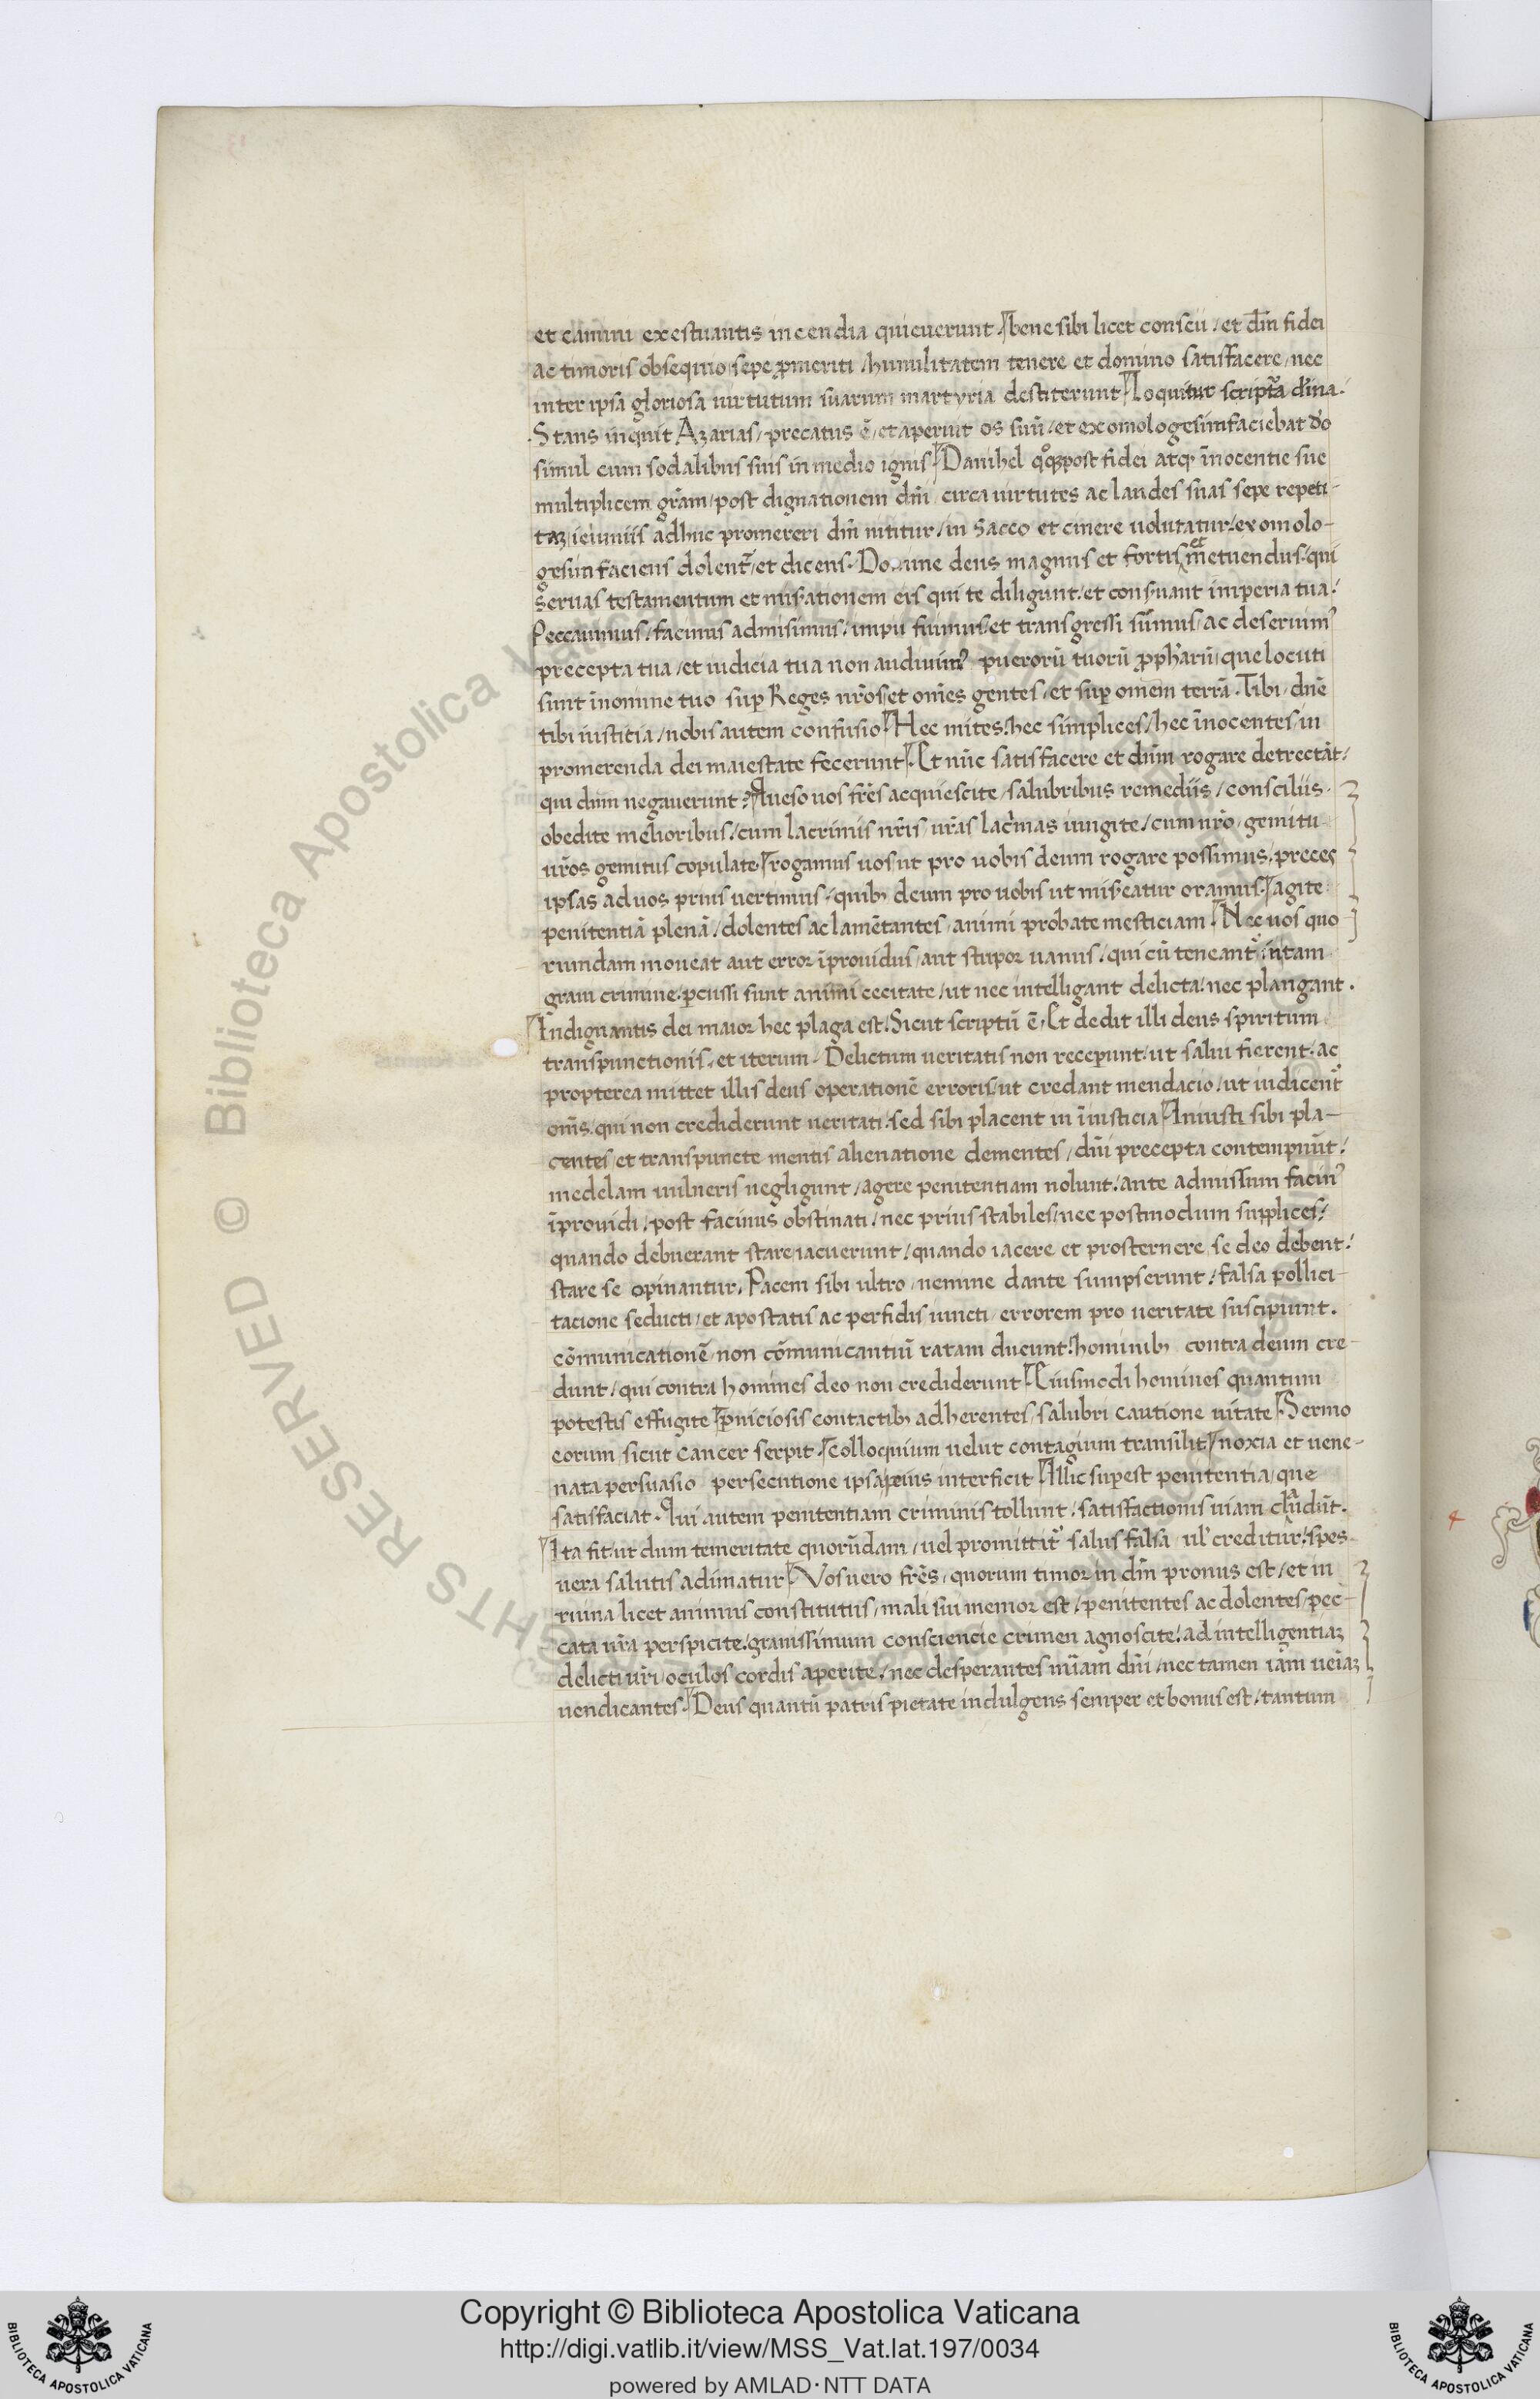 et camini exestuantis incendia quieuerunt. bene sibi licet conscii / et dñi fidei
ac timoris obsequio sepe ꝓmeriti / humilitatem tenere et domino satisfacere / nec
inter ipsa gloriosa uirtutum suarum martyria destiterunt. Loquitur scriptã diĩna.
Stans inquit Azarias / precatus ẽ / et aperuit os suũ / et exomologesim faciebat do
simul cum sodalibus suis in medio ignis. Danihel qͦqꝫ post fidei atqꝫ ĩnocentie sue
multiplicem grãm / post dignationem dñi circa uirtutes ac laudes suas sepe repeti-
taꝫ / ieiuniis adhuc promereri dñm nititur / in sacco et cinere uolutatur / exomolo-
gesim faciens dolentẽ / et dicens. Domine deus magnus et fortis et metuendus / qui
seruas testamentum et mis̃ationem eis qui te diligunt / et cons̃uant imperia tua /
Peccauimus / facinus admisimus / impii fuimus / et transgressi sumus / ac deseruimꝰ
precepta tua / et iudicia tua non audiuimꝰ puerorũ tuorũ ꝓphetarũ / que locuti
sunt ĩ nomine tuo suꝑ Reges nr̃os / et om̃es gentes / et suꝑ om̃em terrã. Tibi / dñe
tibi iustitia / nobis autem confusio. Hec mites / hec simplices / hec ĩnocentes in
promerenda dei maiestate fecerunt. Et nũc satisfacere et dñm rogare detrectãt /
qui dñm negauerunt? Queso uos fr̃es acquiescite salubribus remediis / consciliis
obedite melioribus / cum lacrimis nr̃is ur̃as lacͥmas iungite / cum nr̃o gemitu
ur̃os gemitus copulate. rogamus uos ut pro uobis deum rogare possimus / preces
ipsas ad uos prius uertimus / quibꝫ deum pro uobis ut mis̃eatur oramus. agite
penitentiã plenã / dolentes ac lamẽtantes animi probate mesticiam. Nec uos quo
rundam moueat aut error ĩprouidus / aut stupor uanus / qui cũ teneant᷑ in tam
graui crimine / ꝑcussi sunt animi cecitate / ut nec intelligant delicta / nec plangant.
Indignantis dei maior hec plaga est. Sicut scriptũ ẽ. Et dedit illi deus spiritum
transpunctionis. et iterum. Delictum ueritatis non receꝑunt / ut salui fierent / ac
propterea mittet illis deus operationẽ erroris / ut credant mendacio / ut iudicent᷑
om̃s qui non crediderunt ueritati / sed sibi placent in ĩiusticia. Iniusti sibi pla-
centes / et transpuncte mentis alienatione dementes / dñi precepta contempnũt /
medelam uulneris negligunt / agere penitentiam nolunt / ante admissum facinꝰ
ĩprouidi / post facinus obstinati / nec prius stabiles / nec postmodum supplices /
quando debuerant stare iacuerunt / quando iacere et prosternere se deo debent /
stare se opinantur. Pacem sibi ultro / nemine dante sumpserunt / falsa pollici-
tacione seducti / et apostatis ac perfidis iuncti errorem pro ueritate suscipiunt.
cõmunicationẽ non cõmunicantiũ ratam ducunt / hominibꝫ contra deum cre-
dunt / qui contra homines deo non crediderunt. Eiusmodi homines quantum
potestis effugite. ꝑniciosis contactibꝫ adherentes / salubri cautione uitate. Sermo
eorum sicut cancer serpit. Colloquium uelut contagium transilit. noxia et uene-
nata persuasio persecutione ipsa peius interficit. Illic suꝑest penitentia / que
satisfaciat. Qui autem penitentiam criminis tollunt / satisfactionis uiam claudũt.
Ita fit / ut dum temeritate quorũdam / uel promittit᷑ salus falsa ul̃ creditur / spes
uera salutis adimatur. Vos uero fr̃es / quorum timor in dñm pronus est / et in
ruina licet animus constitutus / mali sui memor est / penitentes ac dolentes / pec-
cata ur̃a perspicite / grauissimum consciencie crimen agnoscite / ad intelligentiaꝫ
delicti ur̃i / oculos cordis aperite / nec desperantes mĩam dñi / nec tamen iam ueniaꝫ
uendicantes. Deus quantũ patris pietate indulgens semper et bonus est / tantum
Copyright © Biblioteca Apostolica Vaticana
http://digi.vatlib.it/view/MSS_Vat.lat.197/0034
powered by AMLAD·NTT DATA